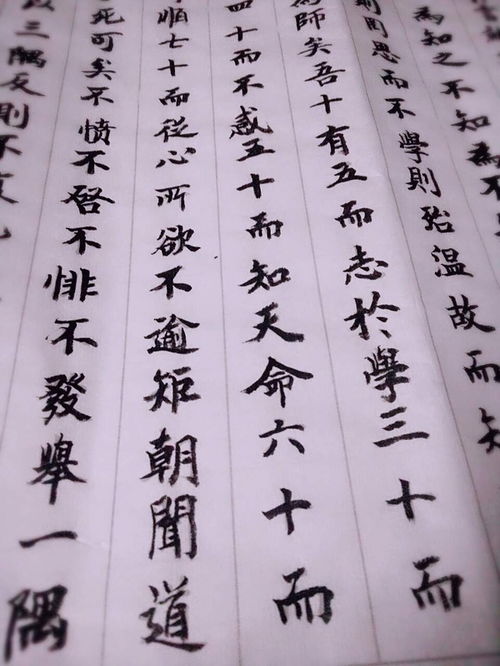 為知之不知為不
則罔思而不學則殆溫故而知
為師矣吾十有五而志於學三十而
四十而不惑五十而知天命六十而
順七十而從心所欲不逾矩朝聞道
死可矣不憤不啓不悱不發舉一隅
以三隅反則不復也